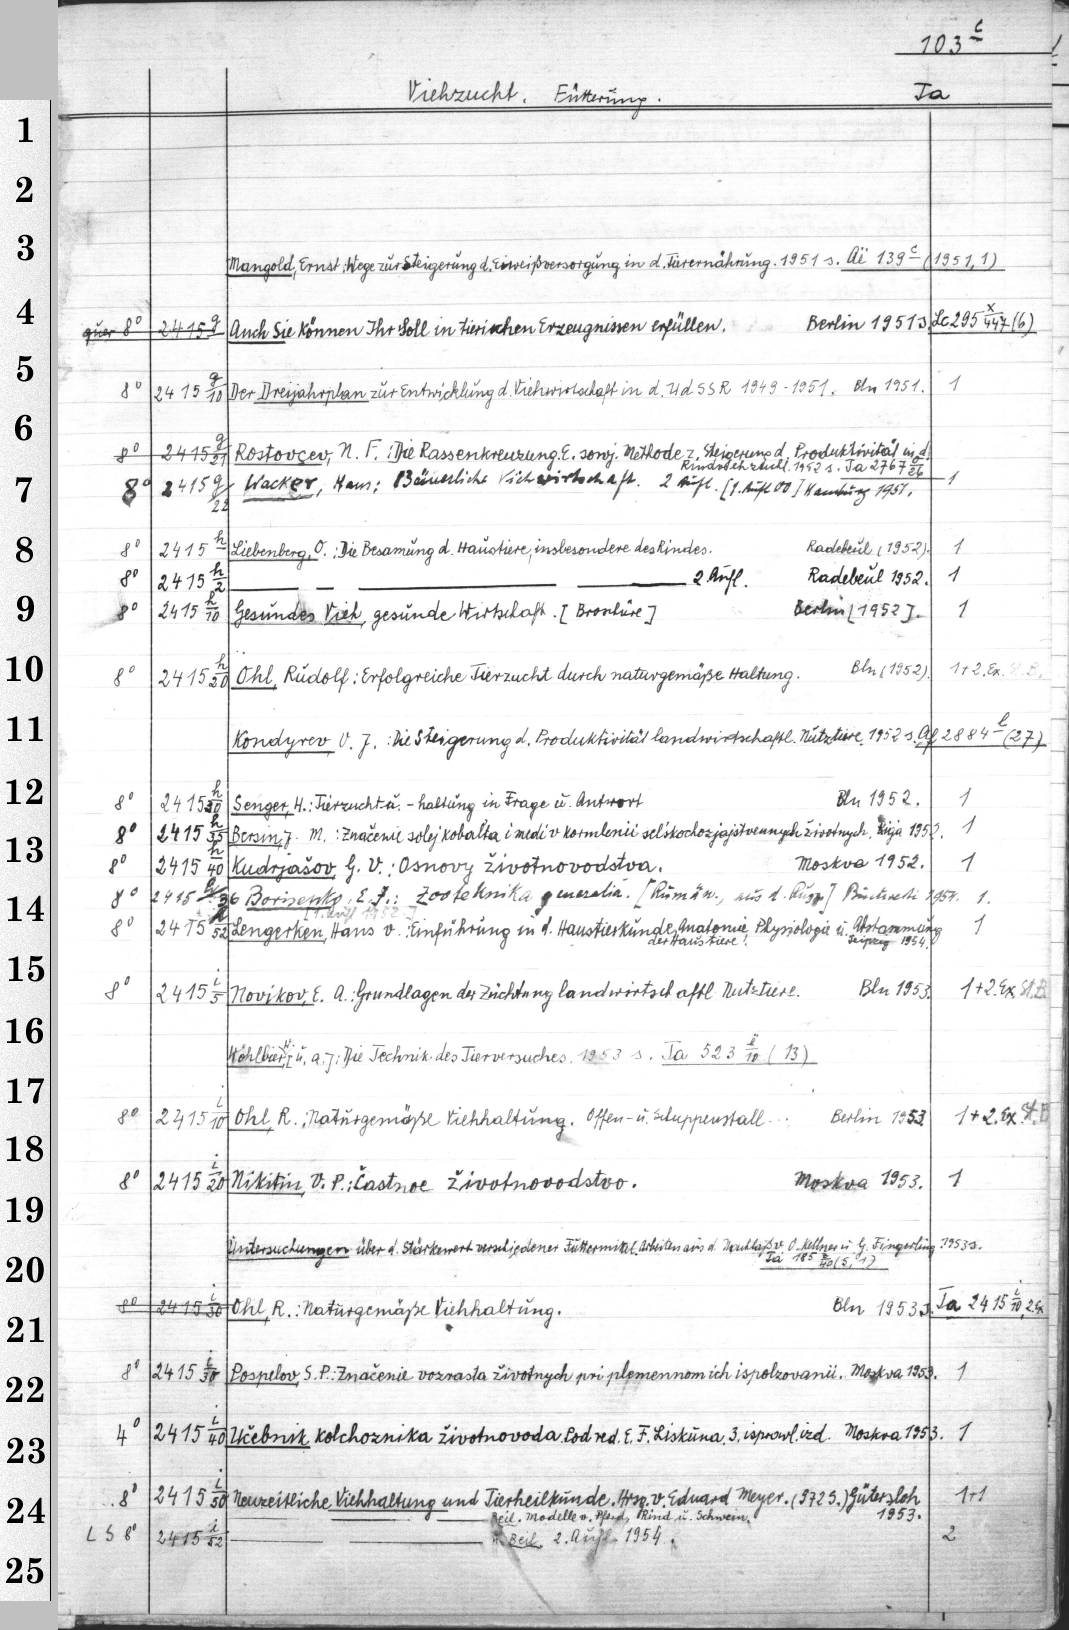 103 c
Viehzucht. Fütterung. Ja
1
2
3
Mangold, Ernst: Wege zur Steigerung d. Eiweißversorgung in d. Tierernährung. 1951 s. Aï 139 c (1951,1)
4
quer 8° 2415 g Auch Sie können Ihr Soll in tierischen Erzeugnissen erfüllen. Berlin 1951 s. Lc 295 x/447 (6)
5
8° 2415 g/10 Der Dreijahrplan zur Entwicklung d. Viehwirtschaft in d. UdSSR 1949-1951. Bln 1951. 1
6
8° 2415 g/21 Rostovcev, N. F.: Die Rassenkreuzung. E. sowj. Methode z. Steigerung d. Produktivität in d.
1952 s. Ja 2767
7
8° 2415 g/22 Wacker, Hans: Bäuerliche Viehwirtschaft. 2 Aufl. [1. Aufl 00] Hamburg 1951. 1
8
8° 2415 h Liebenberg, O.: Die Besamung d. Haustiere, insbesondere des Rindes. Radebeul (1952). 1
8° 2415 h/2 — — — — 2. Aufl. Radebeul 1952. 1
9
8° 2415 h/10 Gesundes Vieh, gesunde Wirtschaft. [Broschüre] Berlin [1952]. 1
10
8° 2415 h/20 Ohl, Rudolf: Erfolgreiche Tierzucht durch naturgemäße Haltung. Bln (1952). 1+2. Ex. St. B.
11
Kondyrev V. J.: Die Steigerung d. Produktivität landwirtschaftl. Nutztiere. 1952 s. Af 2884 l (27)
12
8° 2415 h/30 Senger, H.: Tierzucht u. -haltung in Frage u. Antwort Bln 1952. 1
8° 2415 h/35 Bersin, J. M.: Značenie solej kobalta i medi v kormlenii sel'skochozjajstvennych životnych. Riga 1952. 1
13
8° 2415 h/40 Kudrjašov, G. V.: Osnovy životnovodstva. Moskva 1952. 1
14
8° 2415 h/36 Borisenko, E. J.: Zootehnika generalia. [Rumän., aus d. Russ] Bucuresti 1954. 1.
[1. Aufl 1952]
8° 2415 h/52 Lengerken, Hans v.: Einführung in d. Haustierkunde, Anatomie, Physiologie u. Abstammung 1
der Haustiere. Leipzig 1954.
15
8° 2415 i/5 Novikov, E. A.: Grundlagen der Züchtung landwirtschaftl Nutztiere. Bln 1953. 1+2. Ex St. B
16
Wöhlbier, W. [u. a.]: Die Technik des Tierversuches. 1953 s. Ja 523 ii/10 (13)
17
8° 2415 i/10 Ohl, R.: Naturgemäße Viehhaltung. Offen- u. Schuppenstall... Berlin 1953. 1+2. Ex St. B
18
8° 2415 i/20 Nikitin, V. P.: Častnoe životnovodstvo. Moskva 1953. 1
19
Untersuchungen über d. Stärkewert verschiedener Futtermittel. Arbeiten aus d. Nachlaß v. O. Kellner u. G. Fingerling. 1953 s.
20
Ja 185 /40 (5, 1)
8° 2415 i/30 Ohl, R.: Naturgemäße Viehhaltung. Bln 1953 s. Ja 2415 i/10, 2. Ex
21
8° 2415 i/30 Pospelov, S. P.: Značenie vozrasta životnych pri plemennom ich ispolzovanii. Moskva 1953. 1
22
4° 2415 i/40 Učebnik kolchoznika životnovoda. Pod red. E. F. Liskuna. 3. ispravl. izd. Moskva 1953. 1
23
8° 2415 i/50 Neuzeitliche Viehhaltung und Tierheilkunde. Hrsg. v. Eduard Meyer. (372 S.) Gütersloh 1+1
24
Beil. Modelle v. Pferd, Rind u. Schwein. 1953.
LS 8° 2415 i/52 — — Beil. 2. Aufl. 1954. 2
25